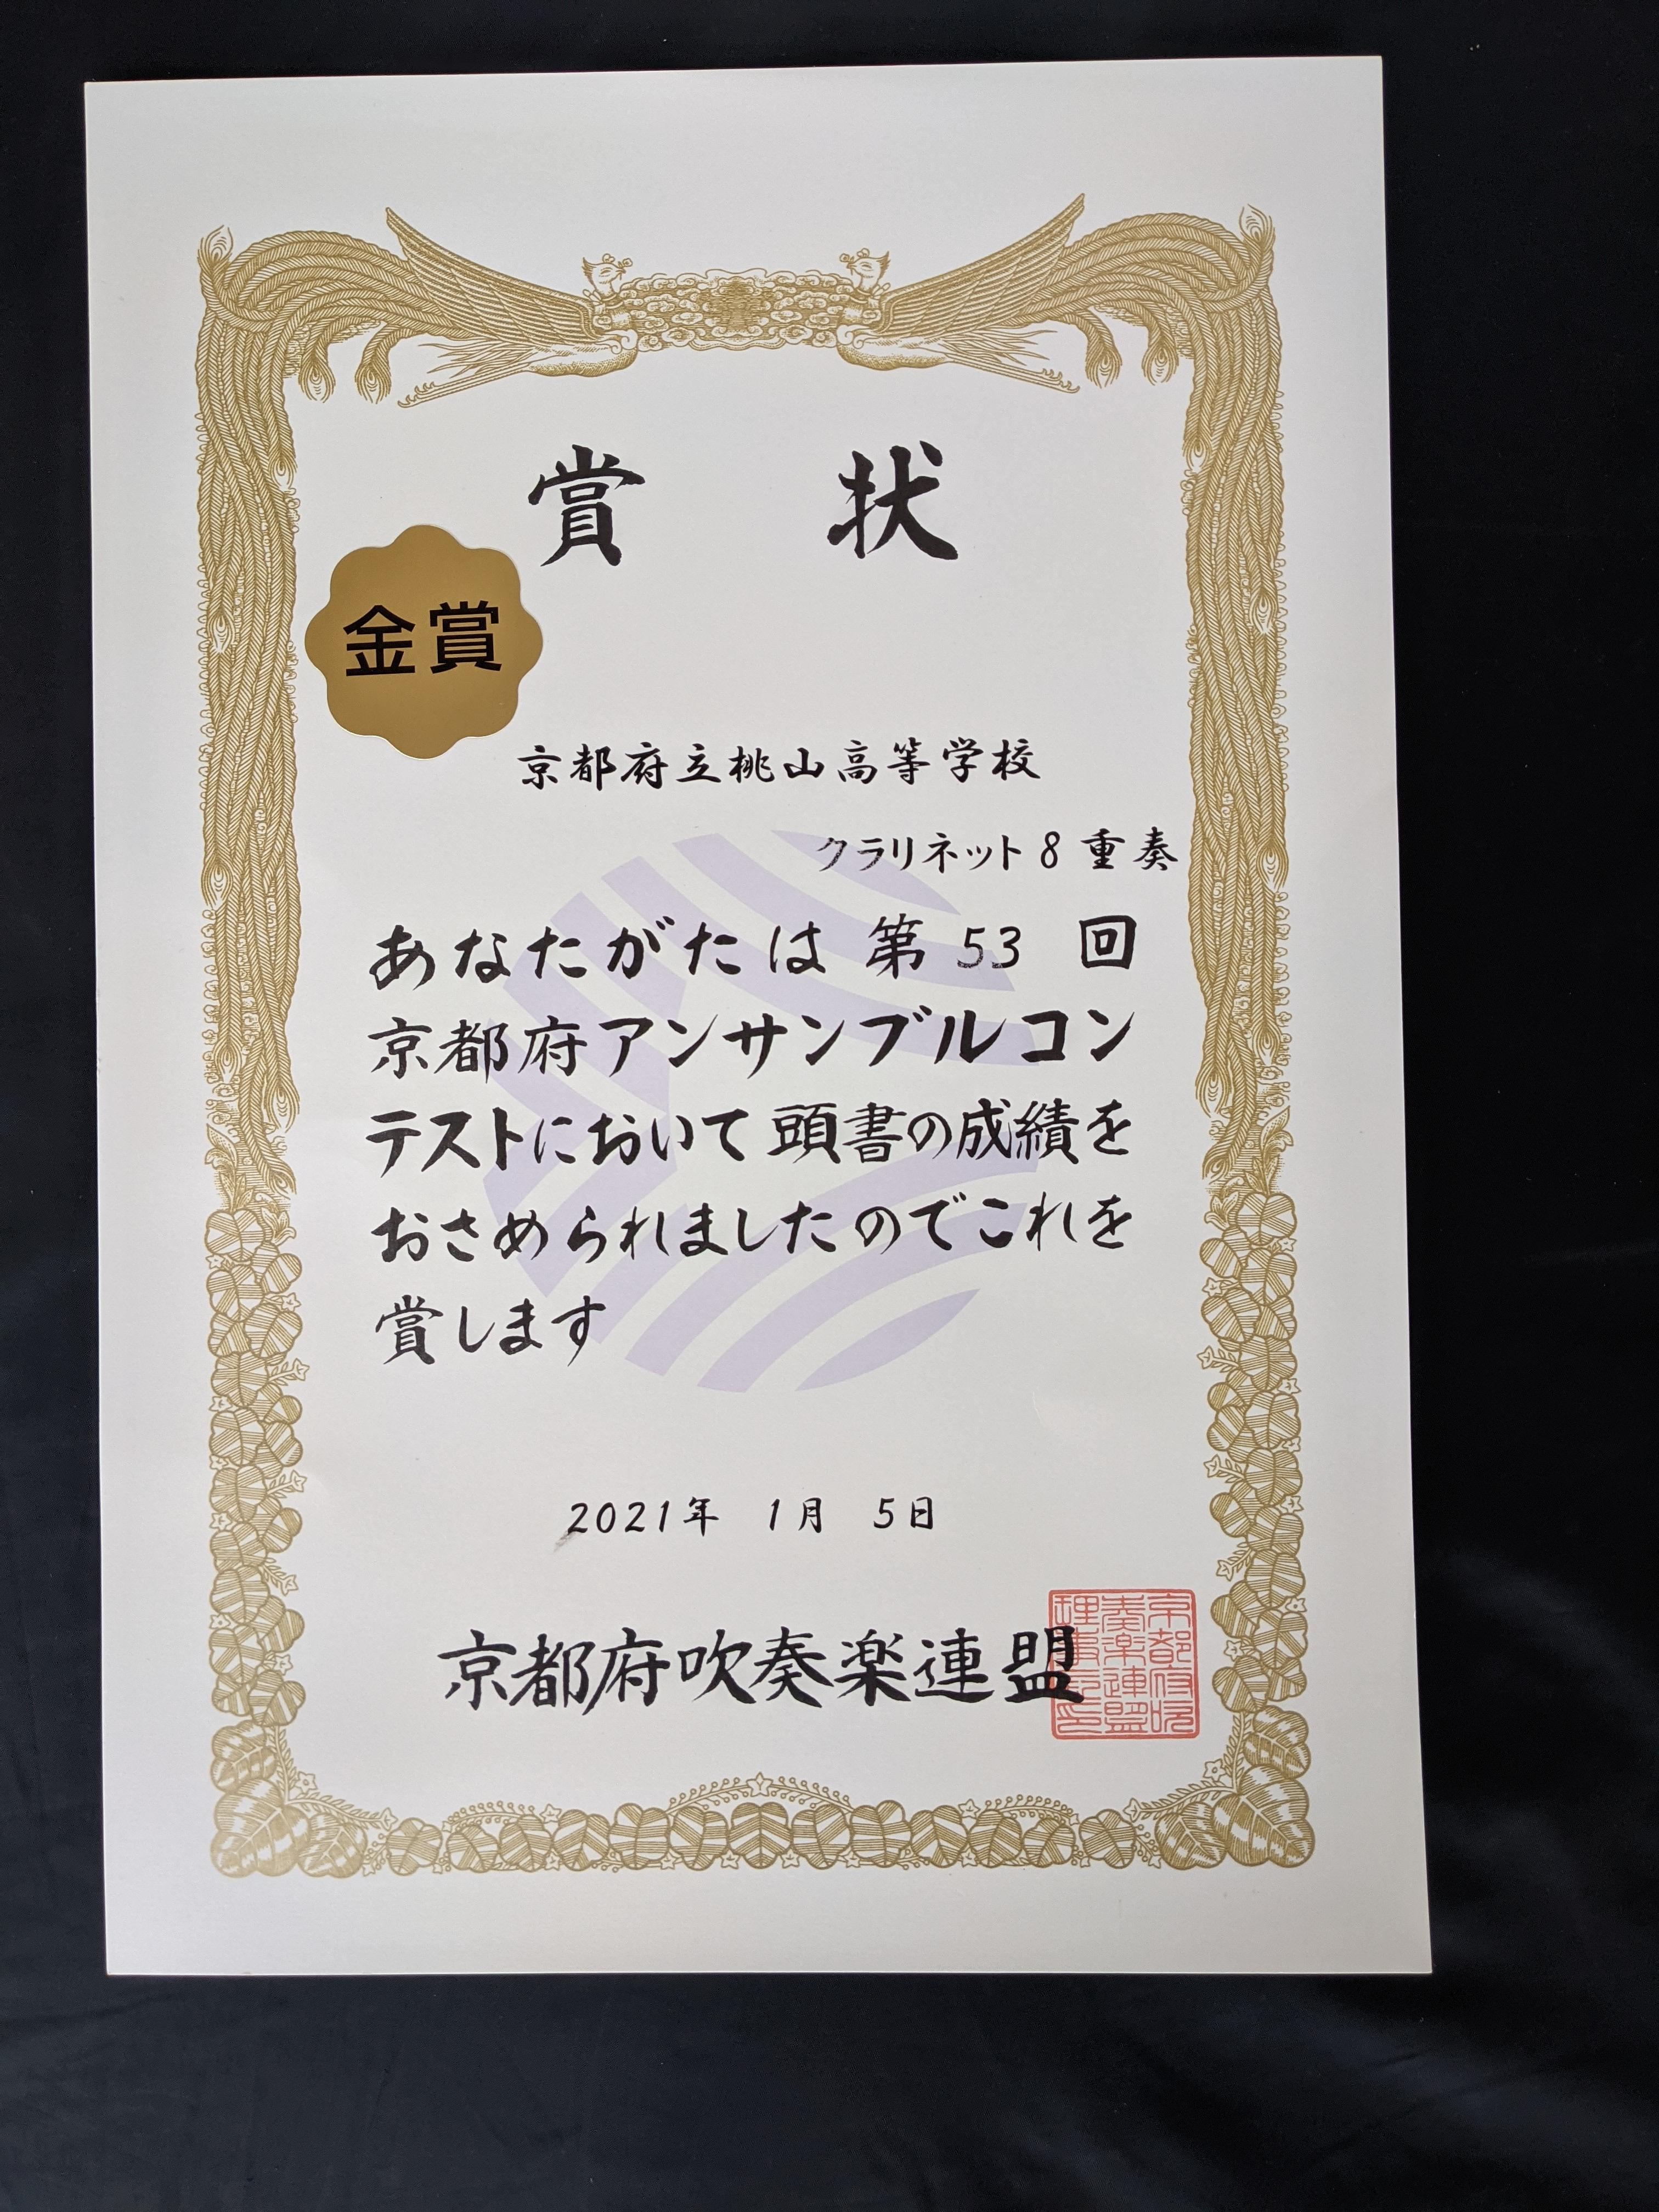 賞状
金賞
京都府立桃山高等学校
クラリネット8重奏
あなたがたは第53回
京都府アンサンブルコン
テストにおいて頭書の成績を
おさめられましたのでこれを
賞します
2021年 1月 5日
京都府吹奏楽連盟
京都府吹
奏楽連盟
理事長印